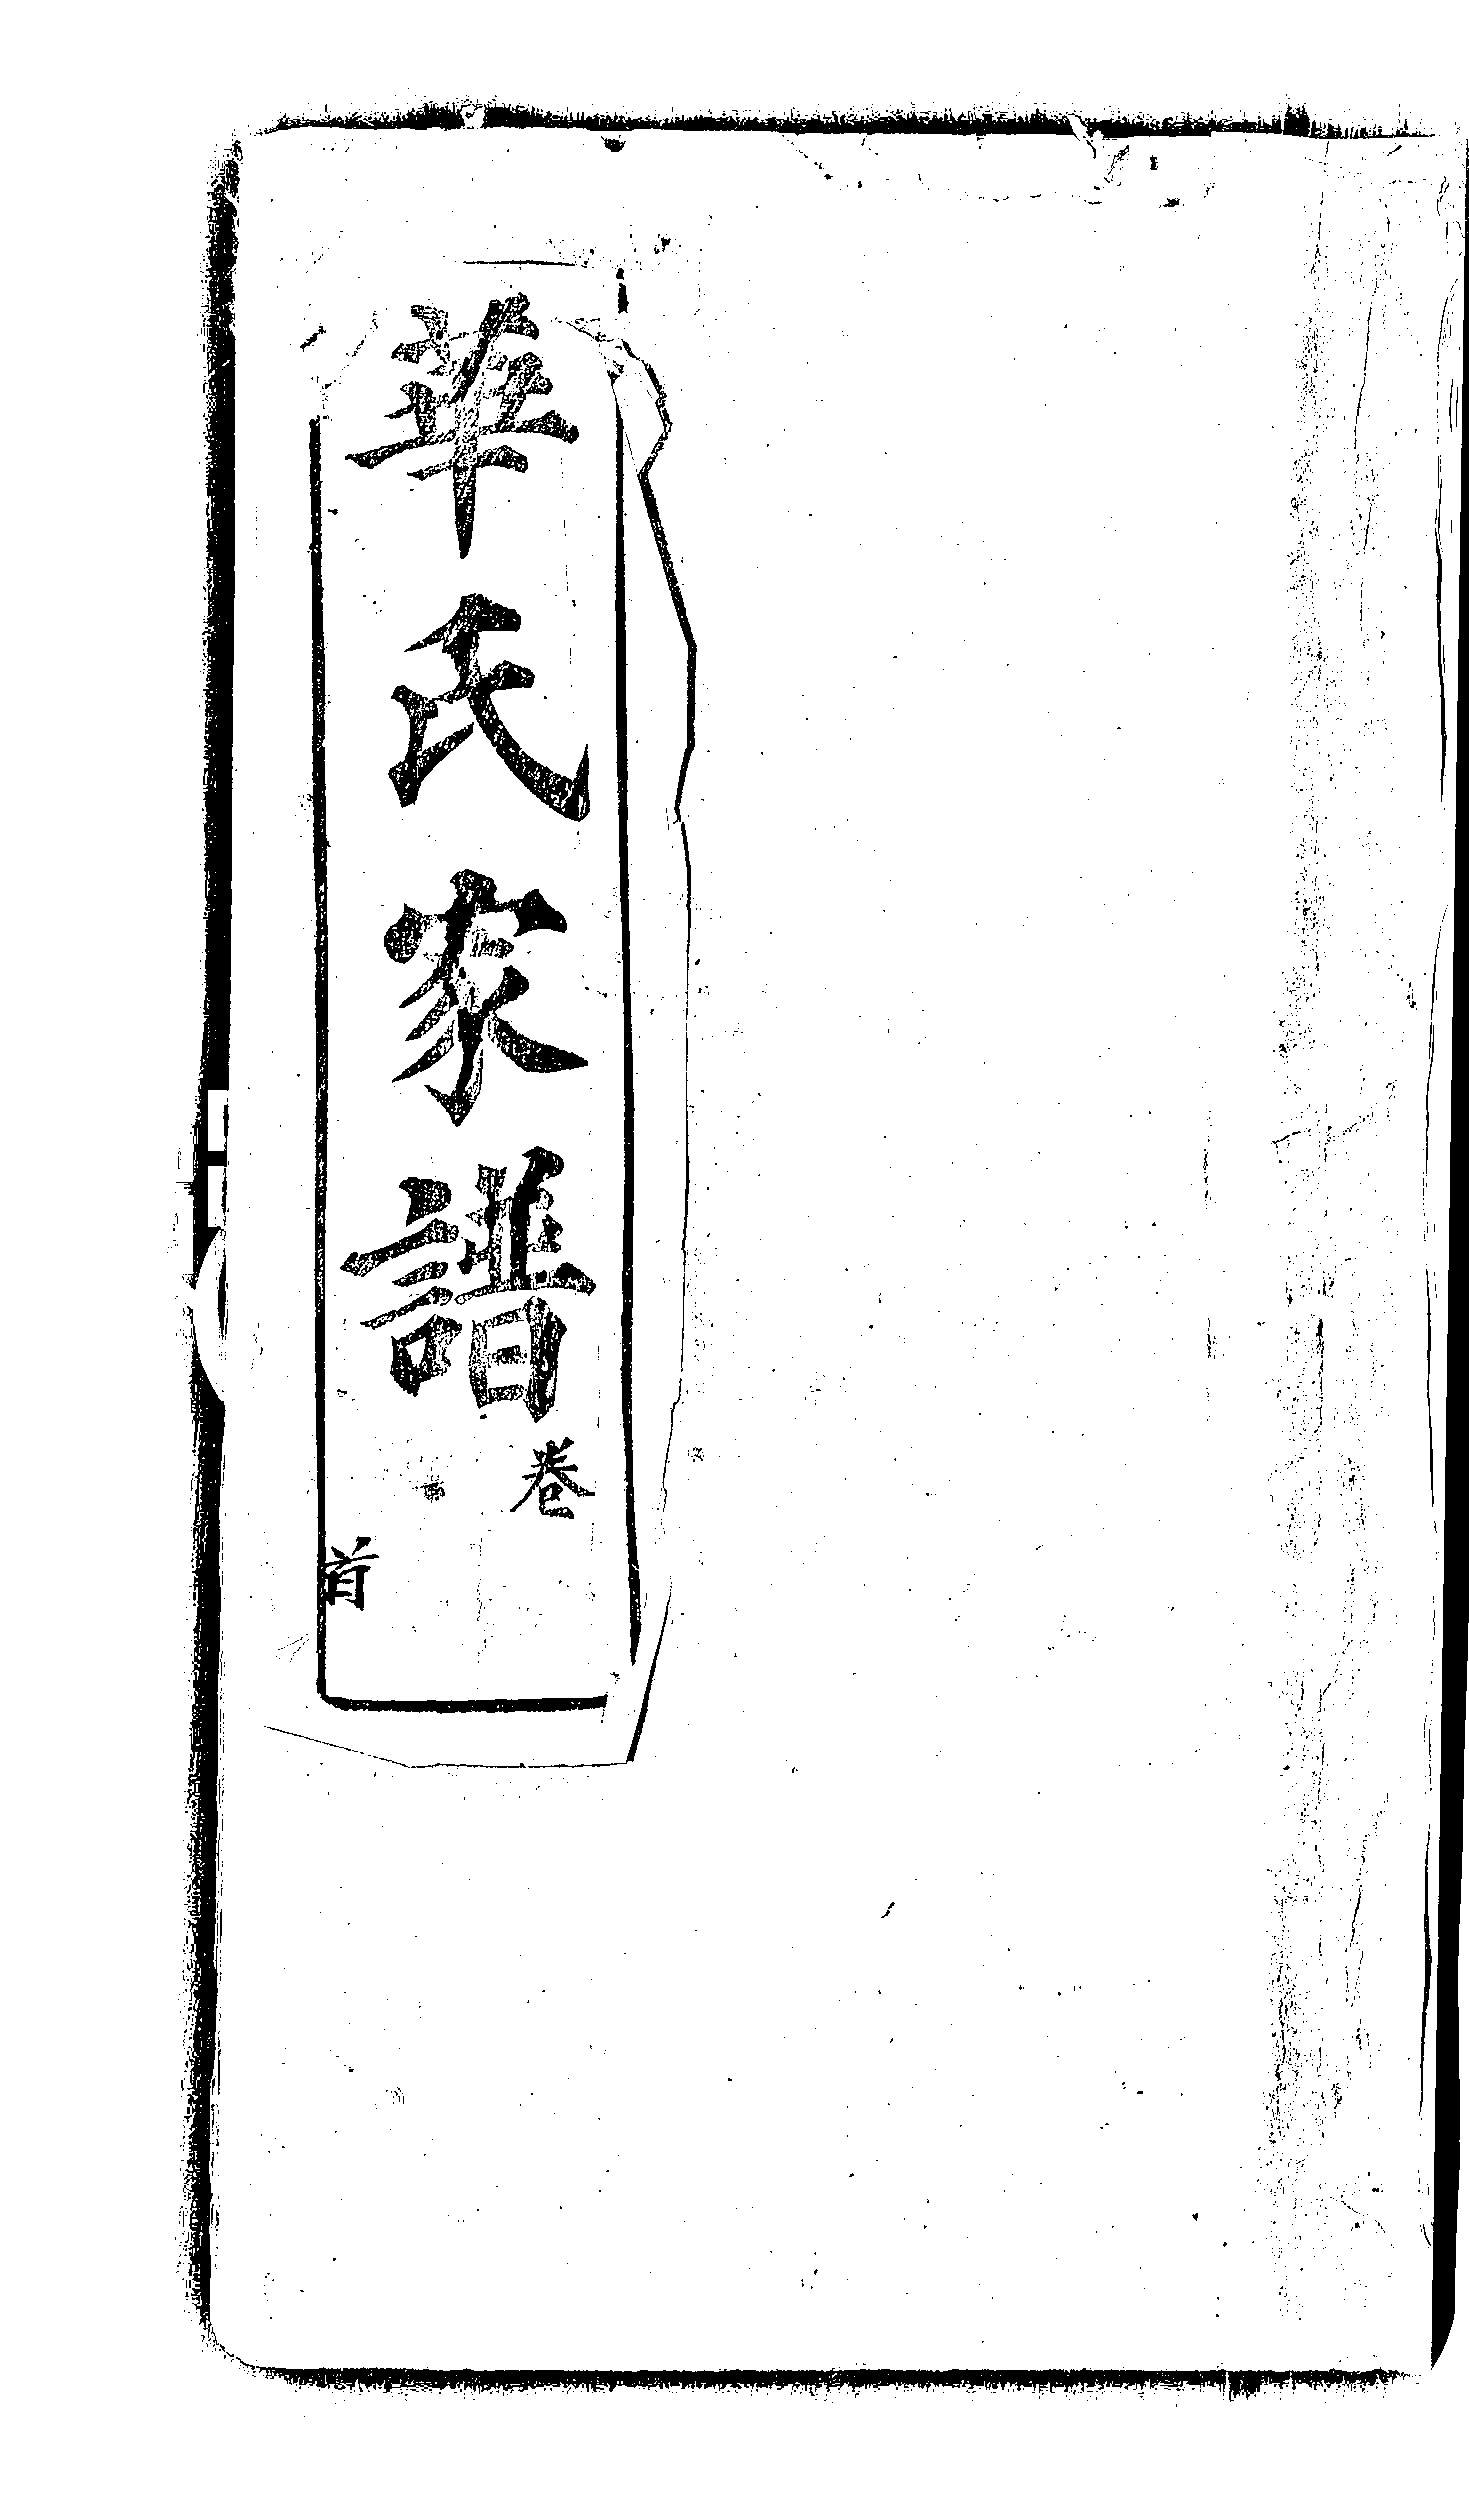 華氏家譜
卷
首